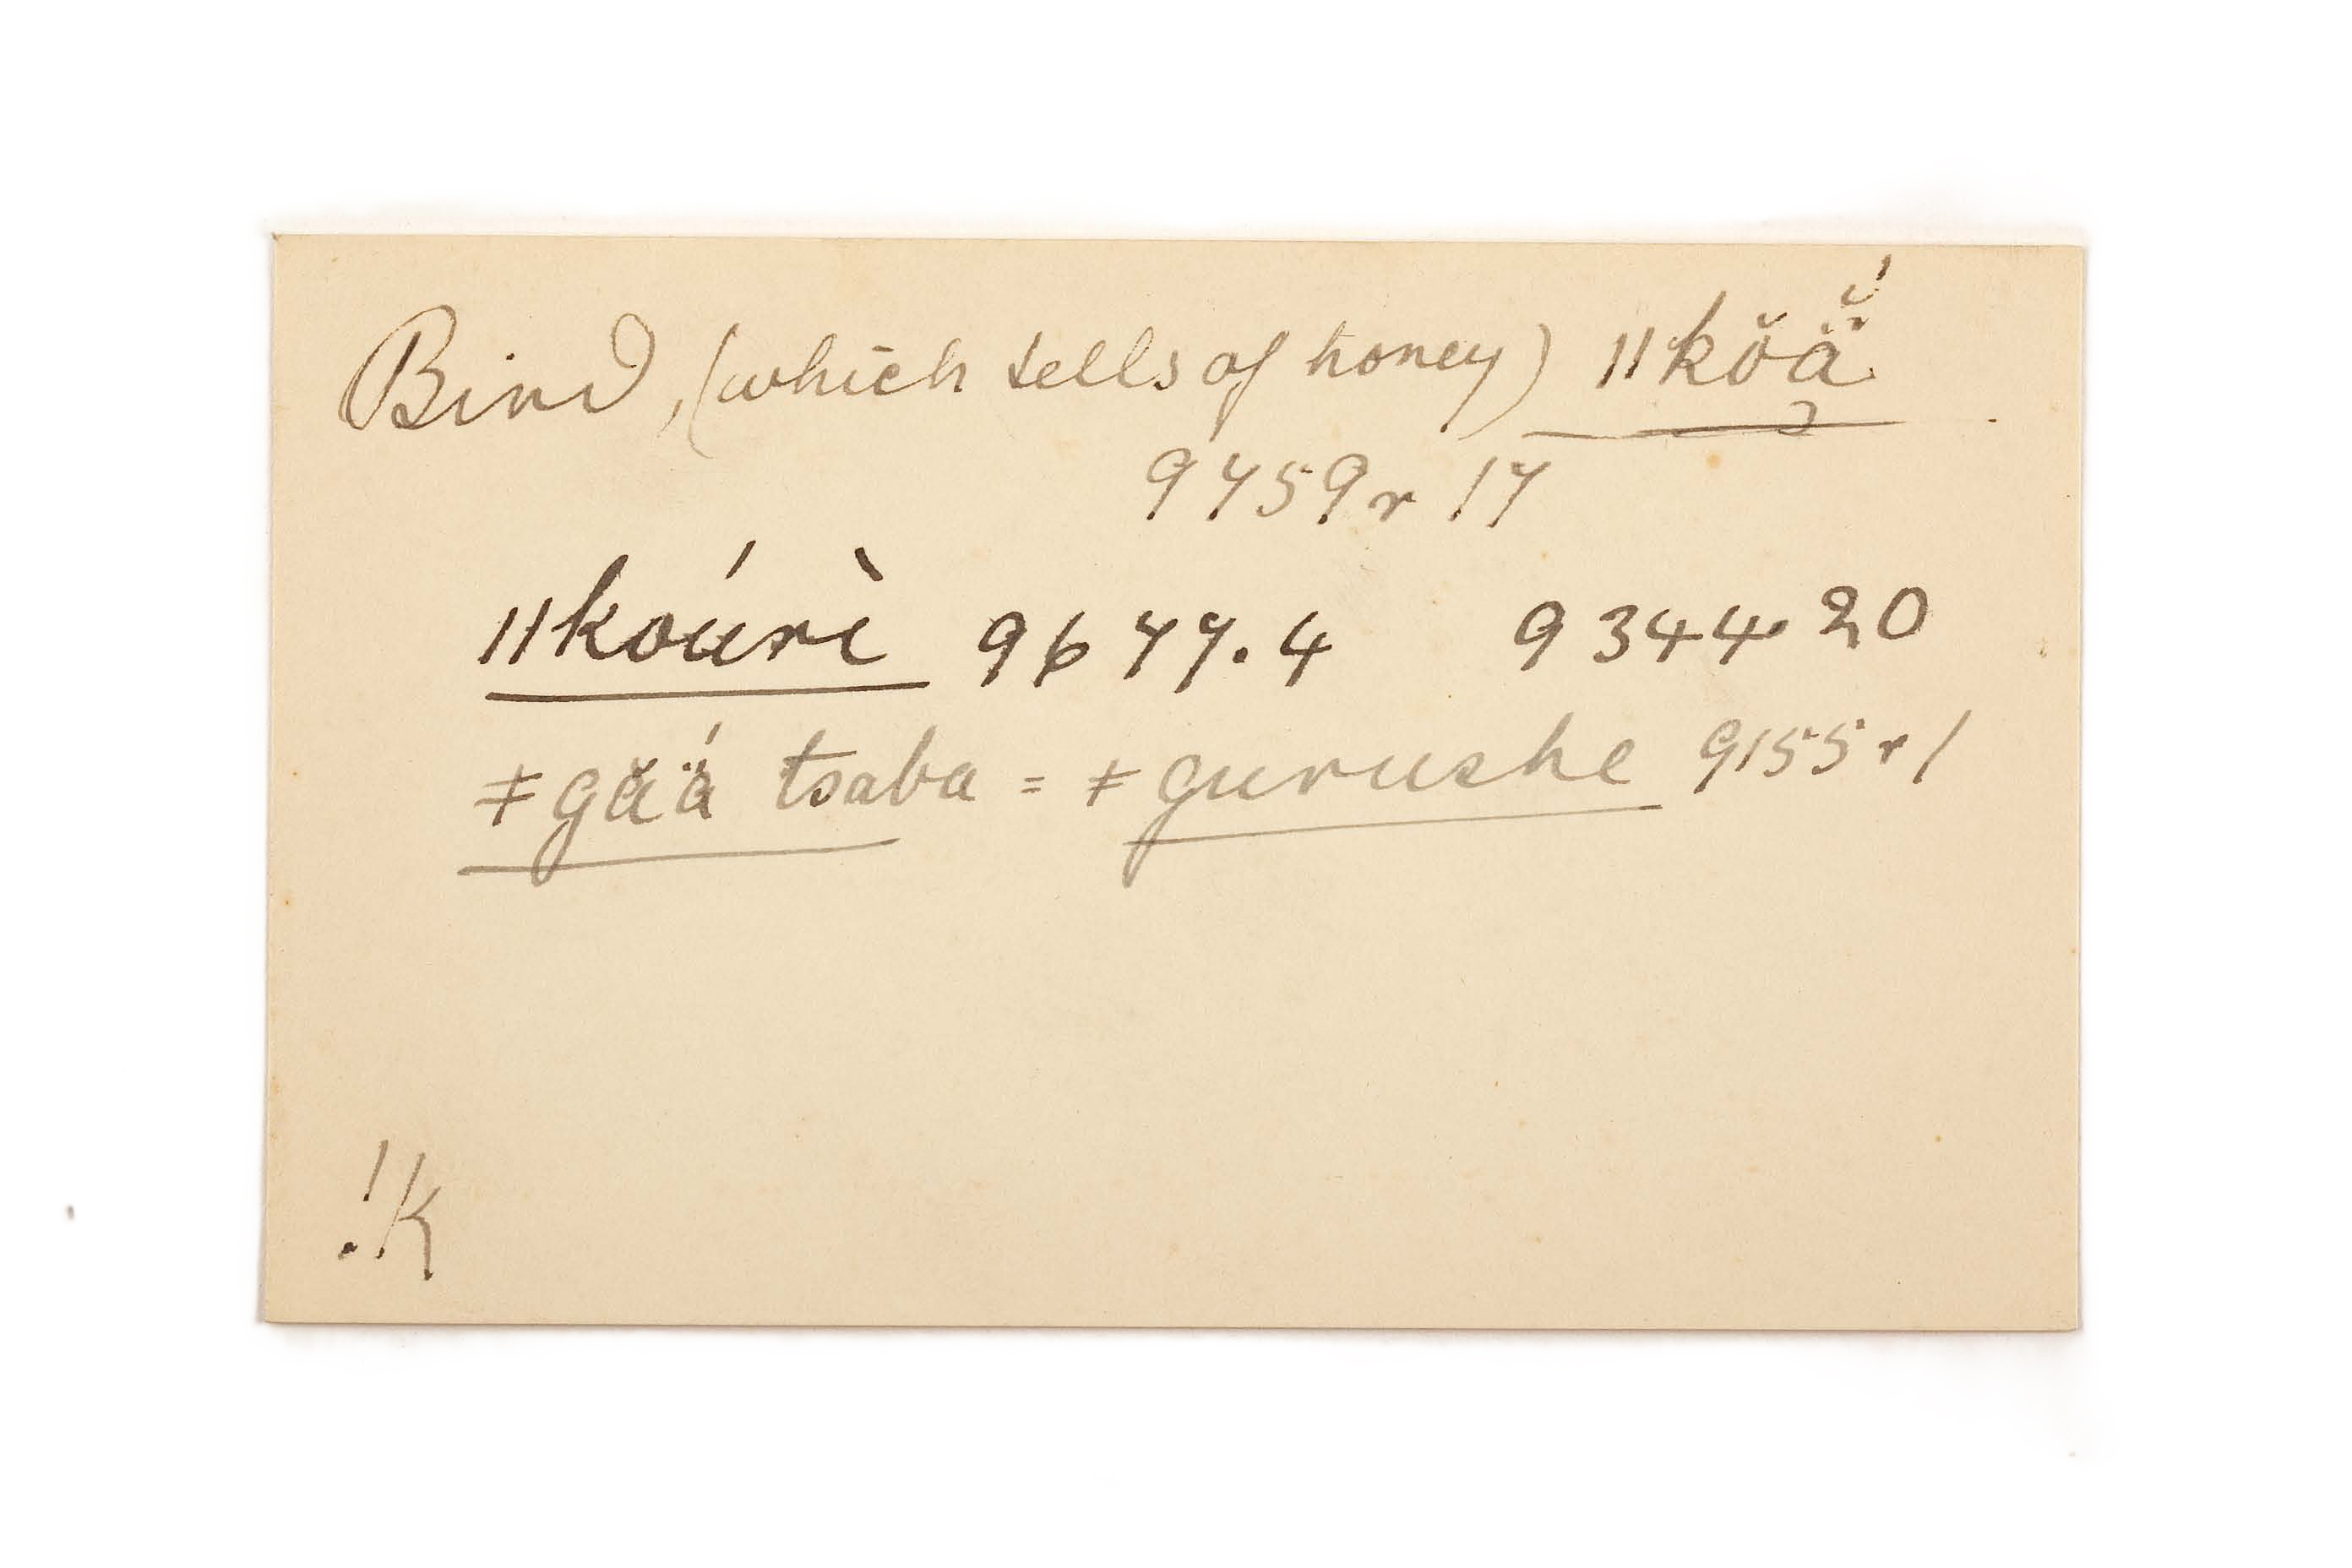 Bird, (which tells of honey) ǁkŏä̆́
9759r 17
ǁkoúrì 9677.4 9344.20
ǂgăä́ tsaba = ǂgurushe 9155r1
!K